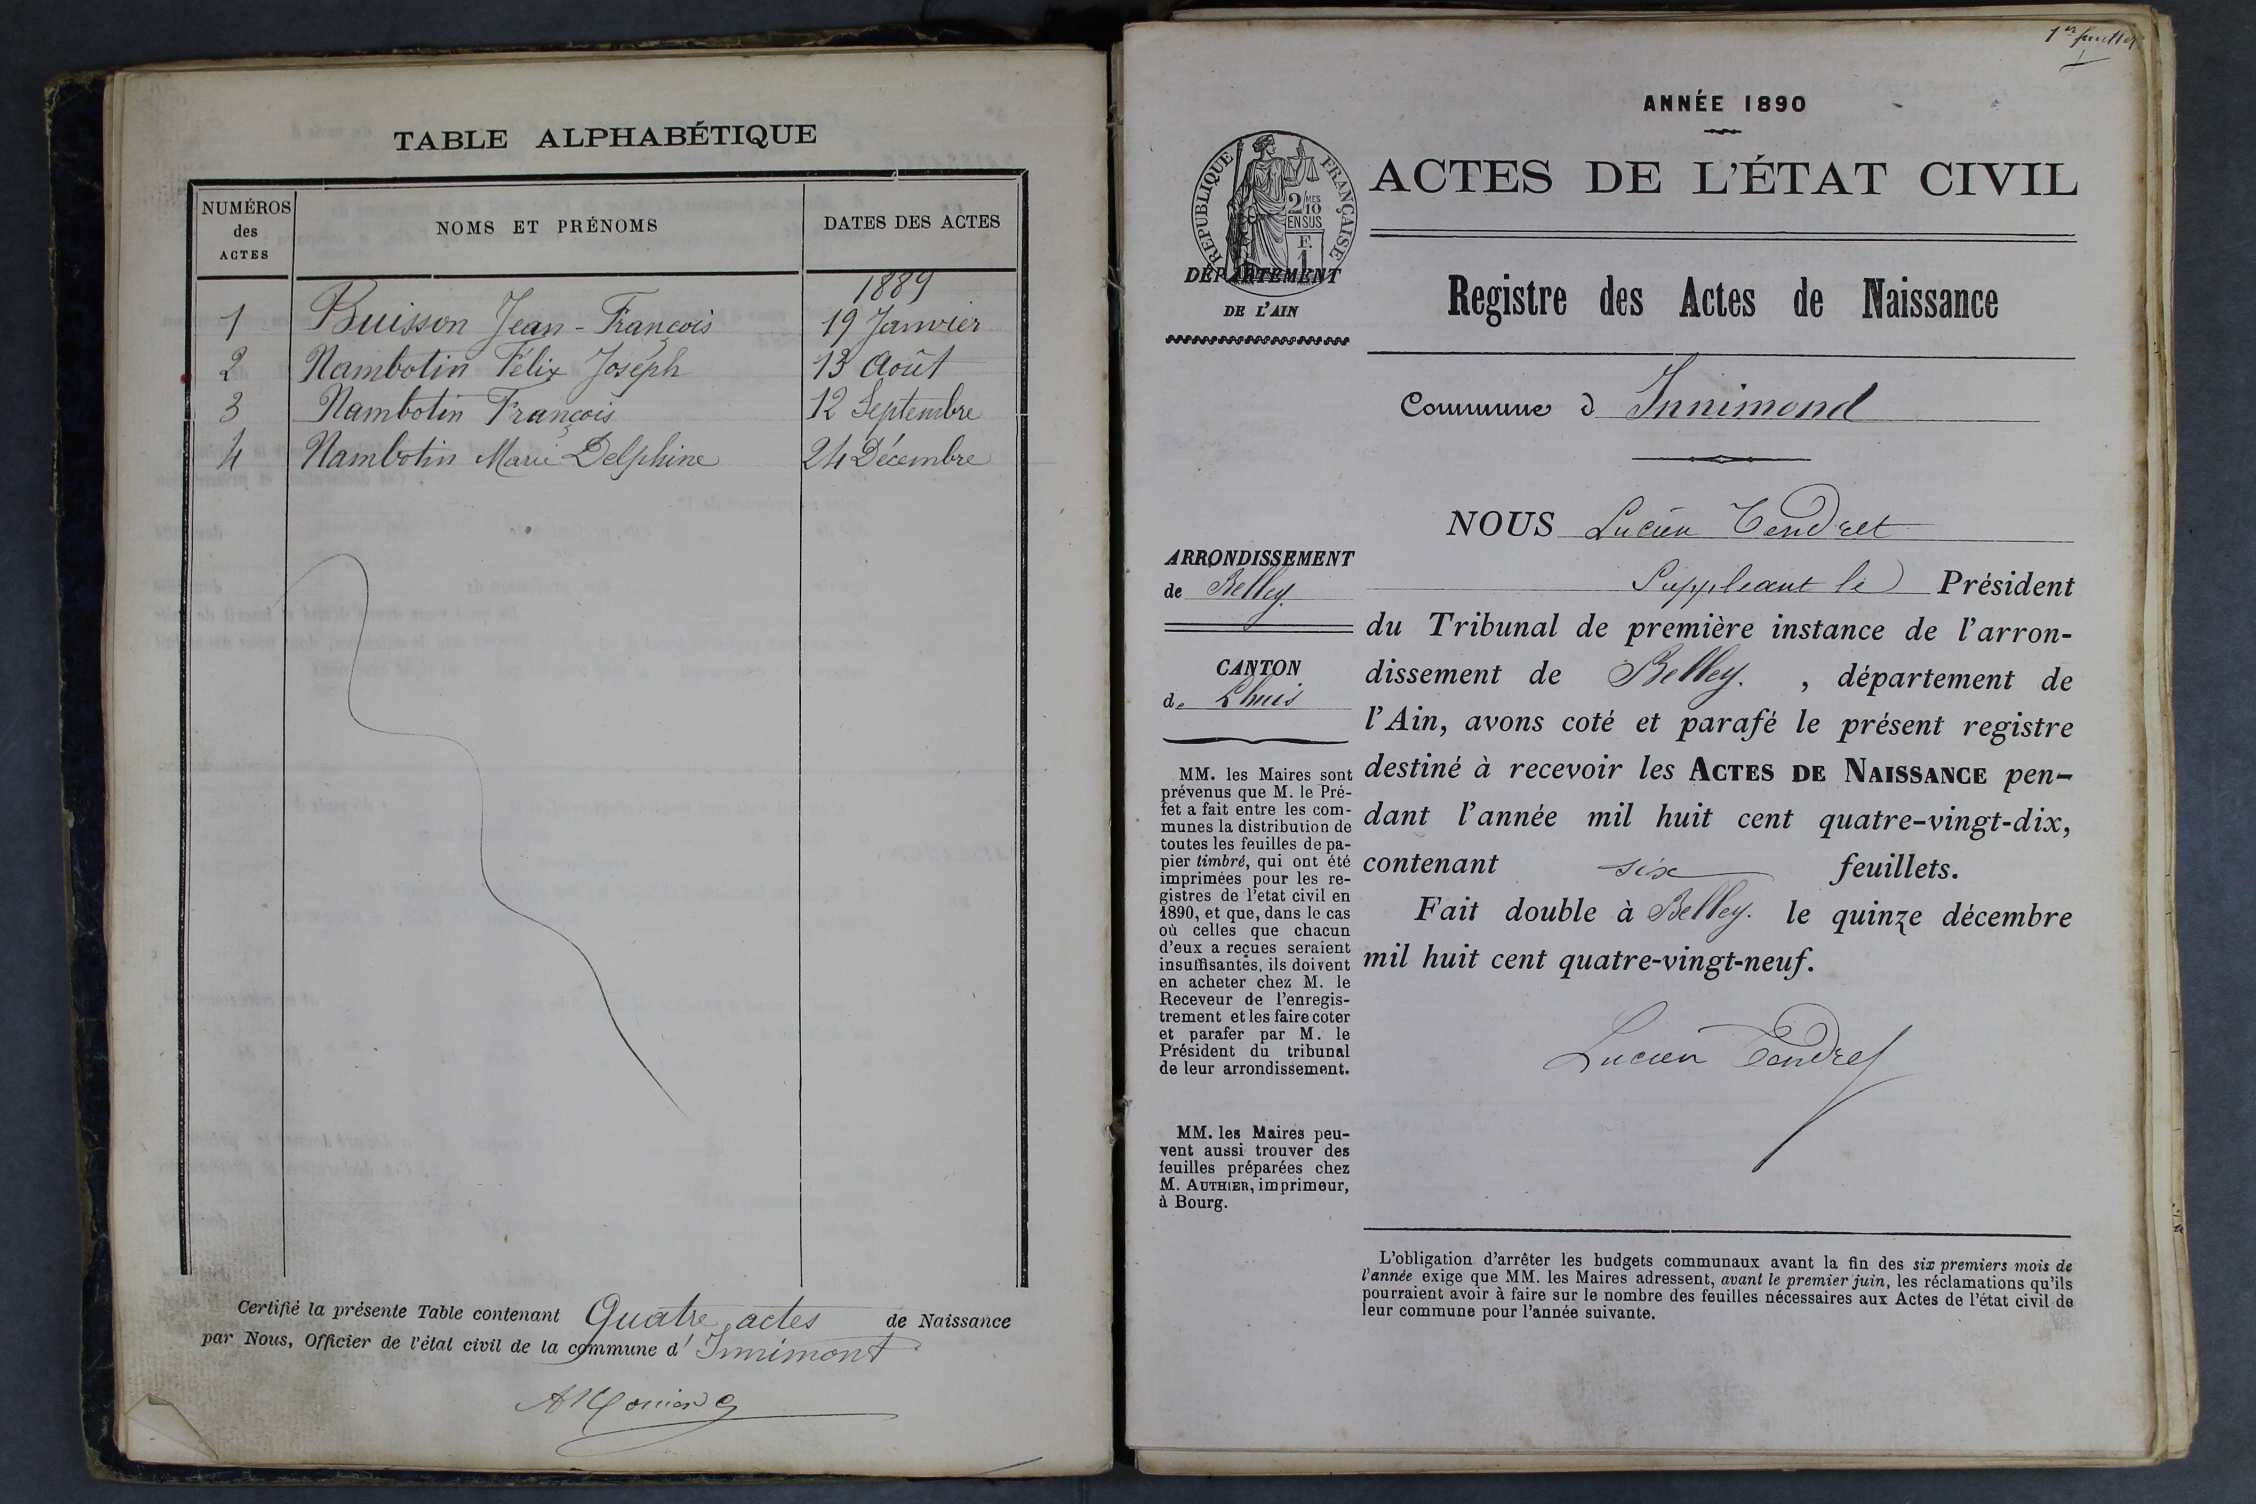 TABLE ALPHABÉTIQUE
NUMÉROS
des
ACTES
NOMS ET PRÉNOMS
DATES DES ACTES
1889
1 Buisson Jean-François 19 Janvier
2 Nambotin Félix Joseph 13 Août
3 Nambotin François 12 Septembre
4 Nambotin Marie Delphine 24 Décembre
Certifié la présente Table contenant Quatre actes de Naissance
par Nous, Officier de l'état civil de la commune d' Innimont
1er feuillet
ANNÉE 1890
ACTES DE L'ÉTAT CIVIL
RÉPUBLIQUE FRANÇAISE
2/10
MES
EN SUS
F.
1
DÉPARTEMENT
DE L'AIN
Registre des Actes de Naissance
Commune d Innimond
NOUS Lucien Tendret
Suppléant le Président
du Tribunal de première instance de l'arron-
dissement de Belley. , département de
l'Ain, avons coté et parafé le présent registre
destiné à recevoir les ACTES DE NAISSANCE pen-
dant l'année mil huit cent quatre-vingt-dix,
contenant six feuillets.
Fait double à Belley. le quinze décembre
mil huit cent quatre-vingt-neuf.
Lucien Tendret
ARRONDISSEMENT
de Belley.
CANTON
de Lhuis
MM. les Maires sont
prévenus que M. le Pré-
fet a fait entre les com-
munes la distribution de
toutes les feuilles de pa-
pier timbré, qui ont été
imprimées pour les re-
gistres de l'etat civil en
1890, et que, dans le cas
où celles que chacun
d'eux a reçues seraient
insuffisantes, ils doivent
en acheter chez M. le
Receveur de l'enregis-
trement et les faire coter
et parafer par M. le
Président du tribunal
de leur arrondissement.
MM. les Maires peu-
vent aussi trouver des
feuilles préparées chez
M. AUTHIER, imprimeur,
à Bourg.
L'obligation d'arrêter les budgets communaux avant la fin des six premiers mois de
l'année exige que MM. les Maires adressent, avant le premier juin, les réclamations qu'ils
pourraient avoir à faire sur le nombre des feuilles nécessaires aux Actes de l'état civil de
leur commune pour l'année suivante.